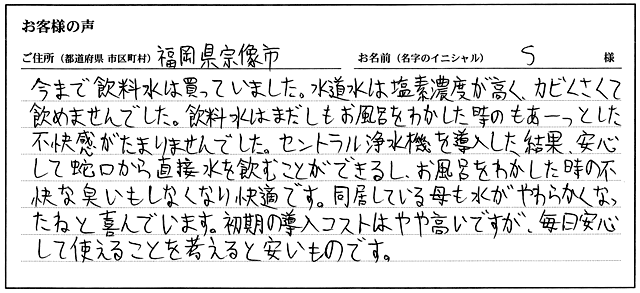 お客様の声
ご住所（都道府県 市区町村） 福岡県宗像市 お名前（名字のイニシャル） S 様
今まで飲料水は買っていました。水道水は塩素濃度が高く、カビくさくて
飲めませんでした。飲料水はまだしもお風呂をわかした時のもあーっとした
不快感がたまりませんでした。セントラル浄水機を導入した結果、安心
して蛇口から直接水を飲むことができるし、お風呂をわかした時の不
快な臭いもしなくなり快適です。同居している母も水がやわらかくなっ
たねと喜んでいます。初期の導入コストはやや高いですが、毎日安心
して使えることを考えると安いものです。